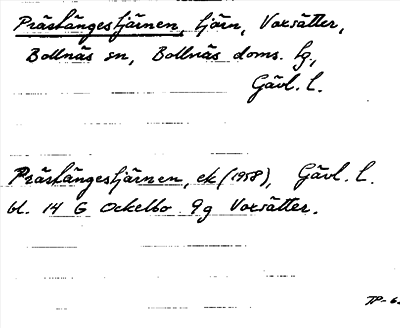 Prästängestjärnen, tjärn, Voxsätter,
Bollnäs sn, Bollnäs doms. hg,
Gävl. l.
Prästängestjärnen, ek (1958), Gävl. l.
bl. 14 G Ockelbo 9g Voxsätter.